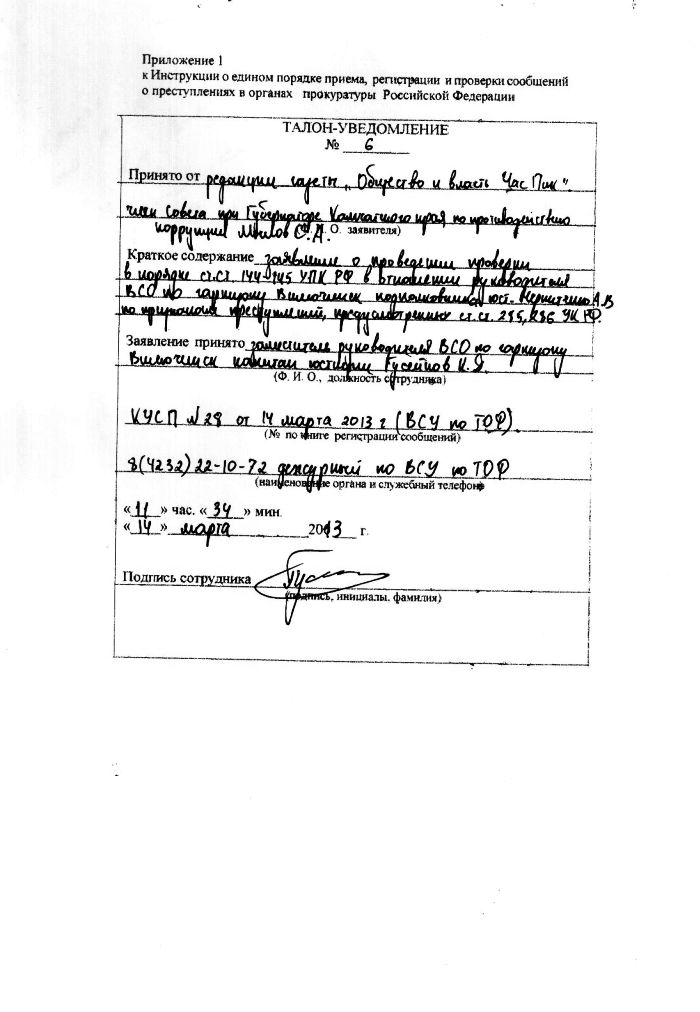 Приложение 1
к Инструкции о едином порядке приема, регистрации и проверки сообщений
о преступлениях в органах прокуратуры Российской Федерации
ТАЛОН-УВЕДОМЛЕНИЕ
№ 6
Принято от редакции газеты „Общество и власть Час Пик"
член Совета при Губернаторе Камчатского края по противодействию
коррупции С.А.
(Ф. И. О. заявителя)
Краткое содержание заявление о проведении проверки
в порядке ст.ст. 144-145 УПК РФ в отношении руководителя
ВСО по гарнизону Вилючинск подполковника юст. А.В
по признакам преступлений, предусмотренных ст.ст. 285, 286 УК РФ.
Заявление принято заместитель руководителя ВСО по гарнизону
Вилючинск капитан юстиции Гусейнов К.Я.
(Ф. И. О., должность сотрудника)
КУСП №28 от 14 марта 2013 г (ВСУ по ТОФ)
(№ по книге регистрации сообщений)
8(4232) 22-10-72 дежурный по ВСУ по ТОФ
(наименование органа и служебный телефон)
«11» час. «34» мин.
«14» марта 2013 г.
Подпись сотрудника
(подпись, инициалы. фамилия)